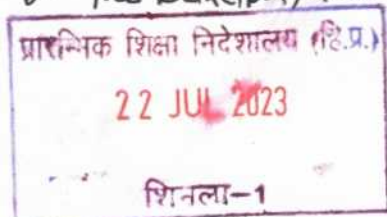 प्रारम्भिक शिक्षा निदेशालय (हि.प्र.)
22 JUL 2023
शिमला-1